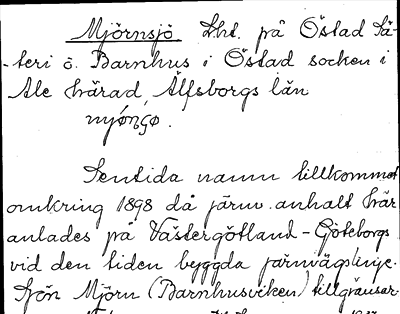 Mjörnsjö Lht. på Östad Sä-
-teri o. Barnhus i Östad socken i
Ale härad, Älfsborgs län
Sentida namn tillkommet
omkring 1898 då järnv. anhalt här
anlades på Västergötland-Göteborgs
vid den tiden byggda järnvägslinje.
Sjön Mjörn (Barnhusviken) tillgränsar-